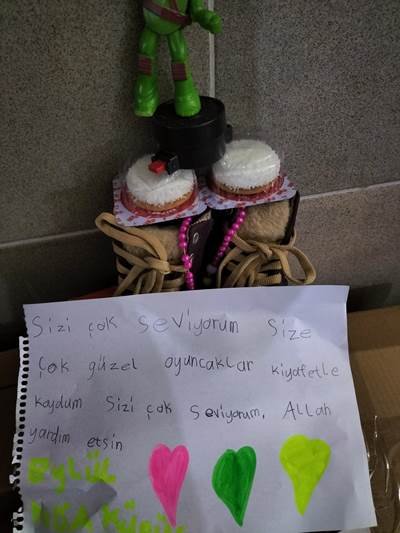 Sizi çok seviyorum Size
Çok güzel oyuncaklar kiyafetle
koydum Sizi çok seviyorum. Allah
yardım etsin
Eylül